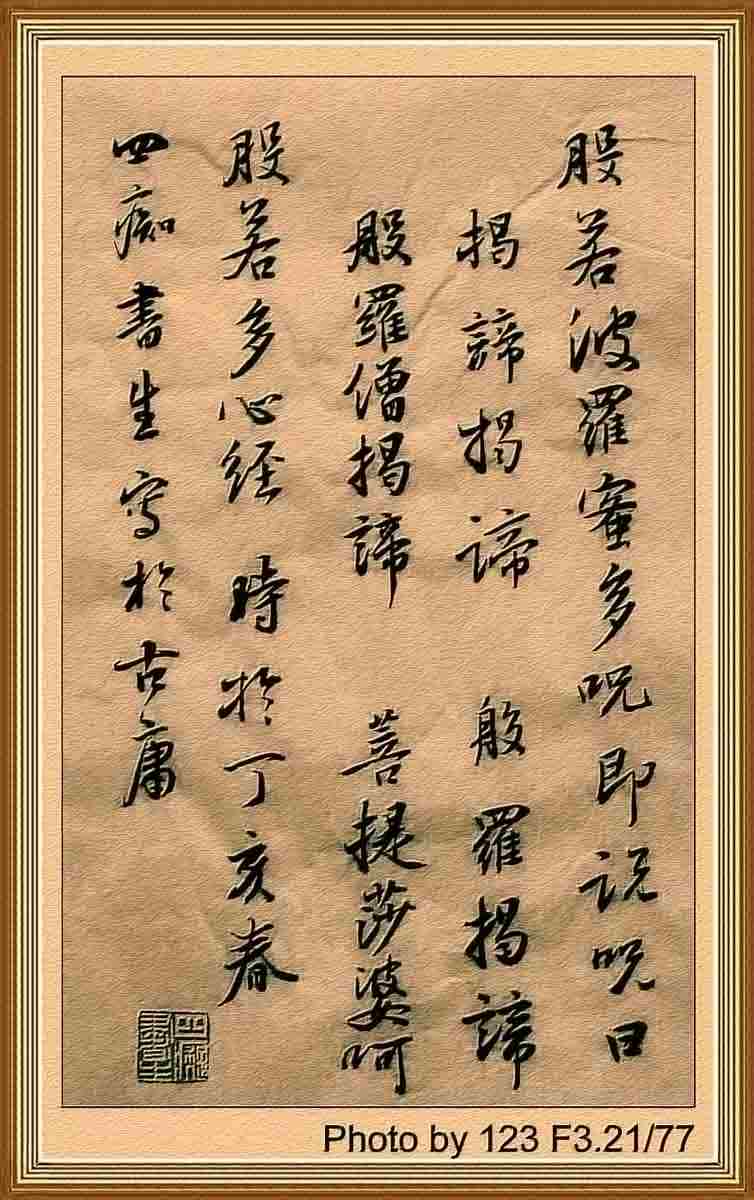 般若波羅蜜多呪即说呪曰
揭諦揭谛 般羅揭諦
般羅僧揭諦 菩提莎婆呵
般若多心经 時於丁亥春
四痴書生写於古庸
四癡書生
Photo by 123 F3.21/77